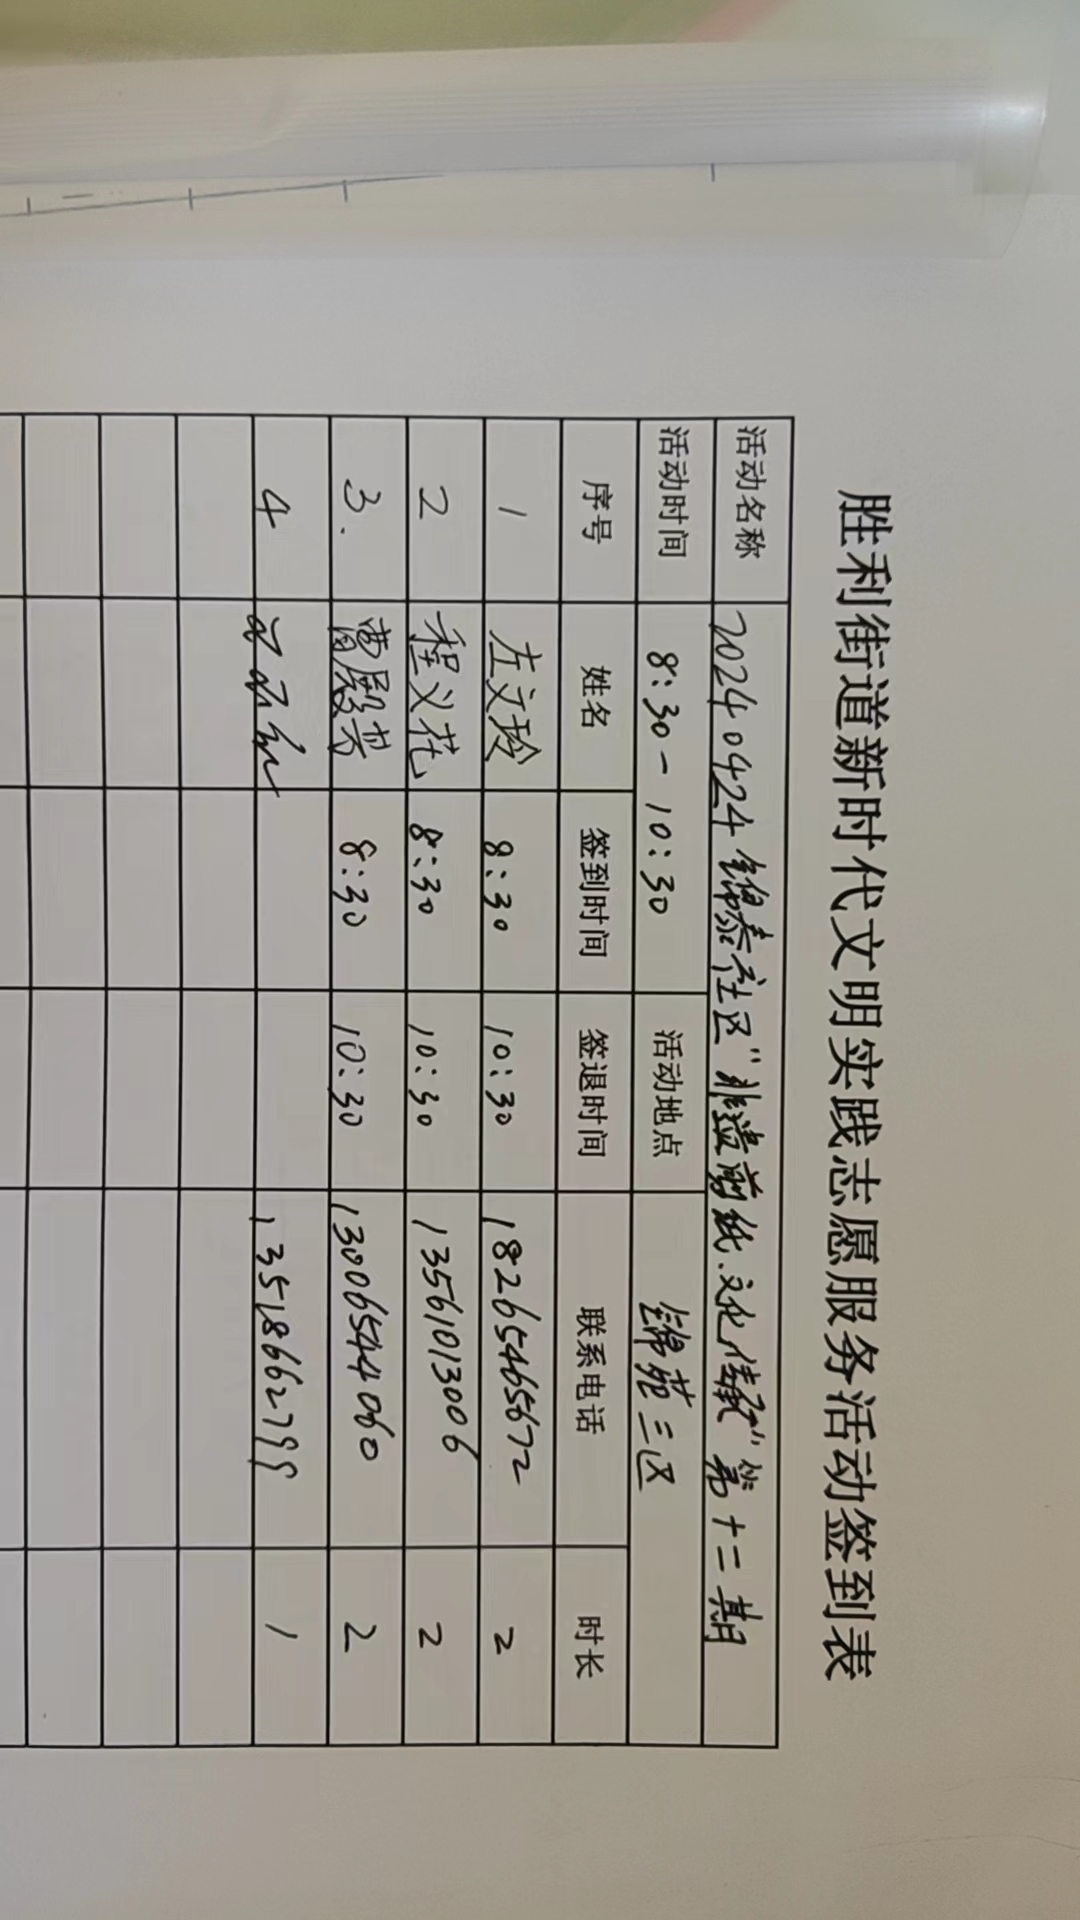 胜利街道新时代文明实践志愿服务活动签到表
活动名称 20240424锦泰社区“非遗剪纸.文化传承”第十二期
活动时间 8:30-10:30 活动地点 锦苑三区
序号 姓名 签到时间 签退时间 联系电话 时长
1 左文玲 8:30 10:30 18265465672 2
2 程义花 8:30 10:30 13561013006 2
3. 曹殿芳 8:30 10:30 13006544060 2
4 13518662799 1